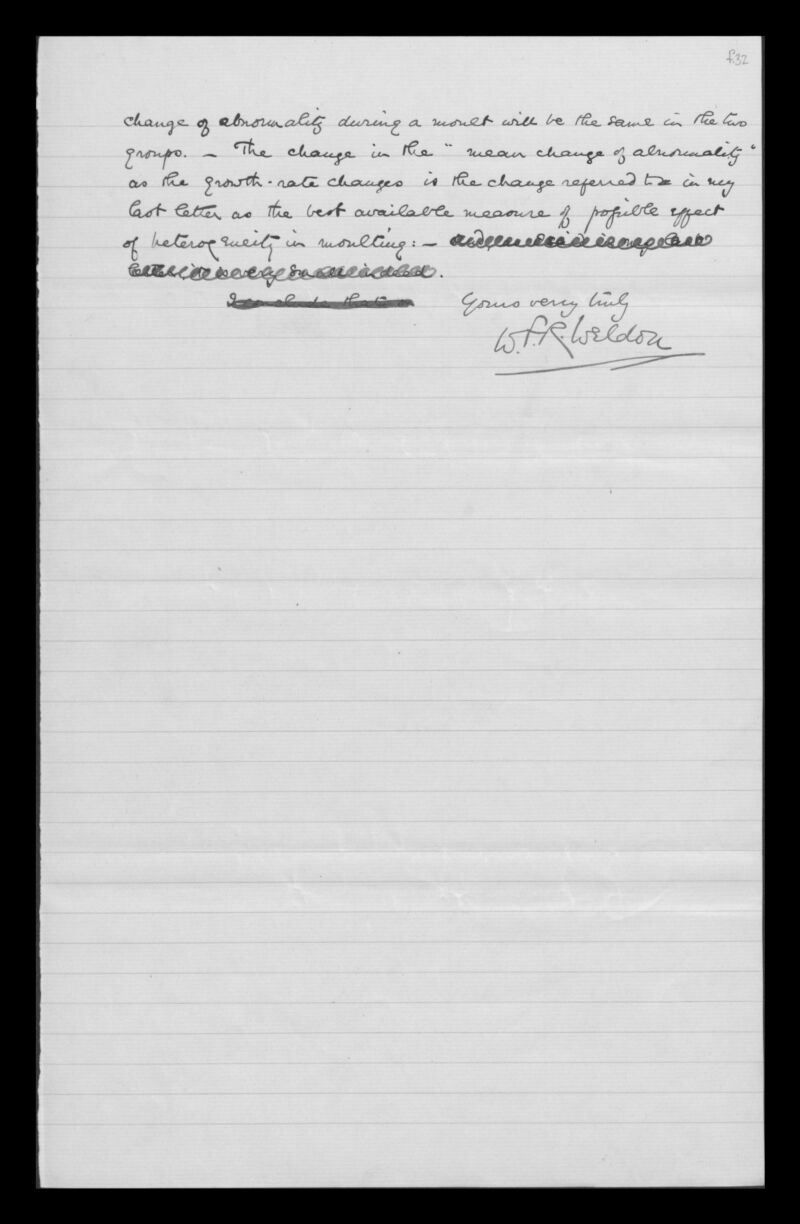 f.32
change of abnormality during a moult will be the same in the two
groups. — The change in the "mean change of abnormality"
as the growth-rate changes is the change referred to in my
last letter as the best available measure of possible effect
of heterogeneity in moulting: —
Yours very truly
W.F.R. Weldon